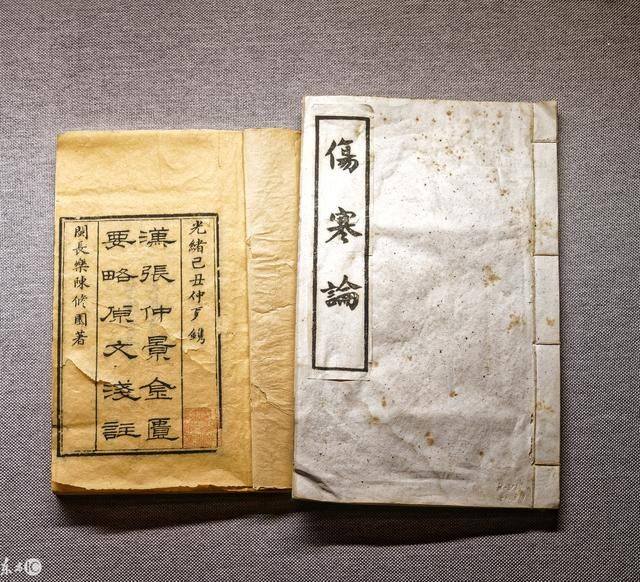 傷寒論
光緒己丑仲鐫
漢張仲景金匱
要略原文淺註
閩長樂陳修園著
IC